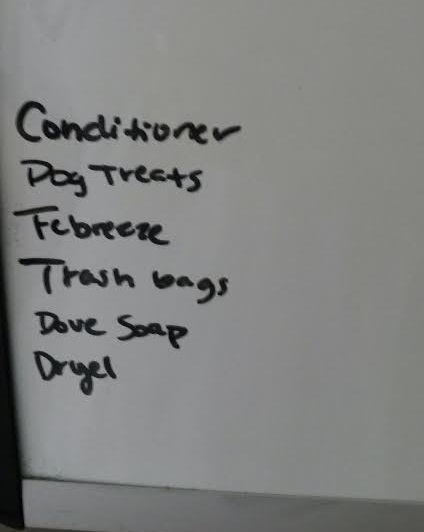 Conditioner
Dog Treats
Febreeze
Trash bags
Dove Soap
Dryel